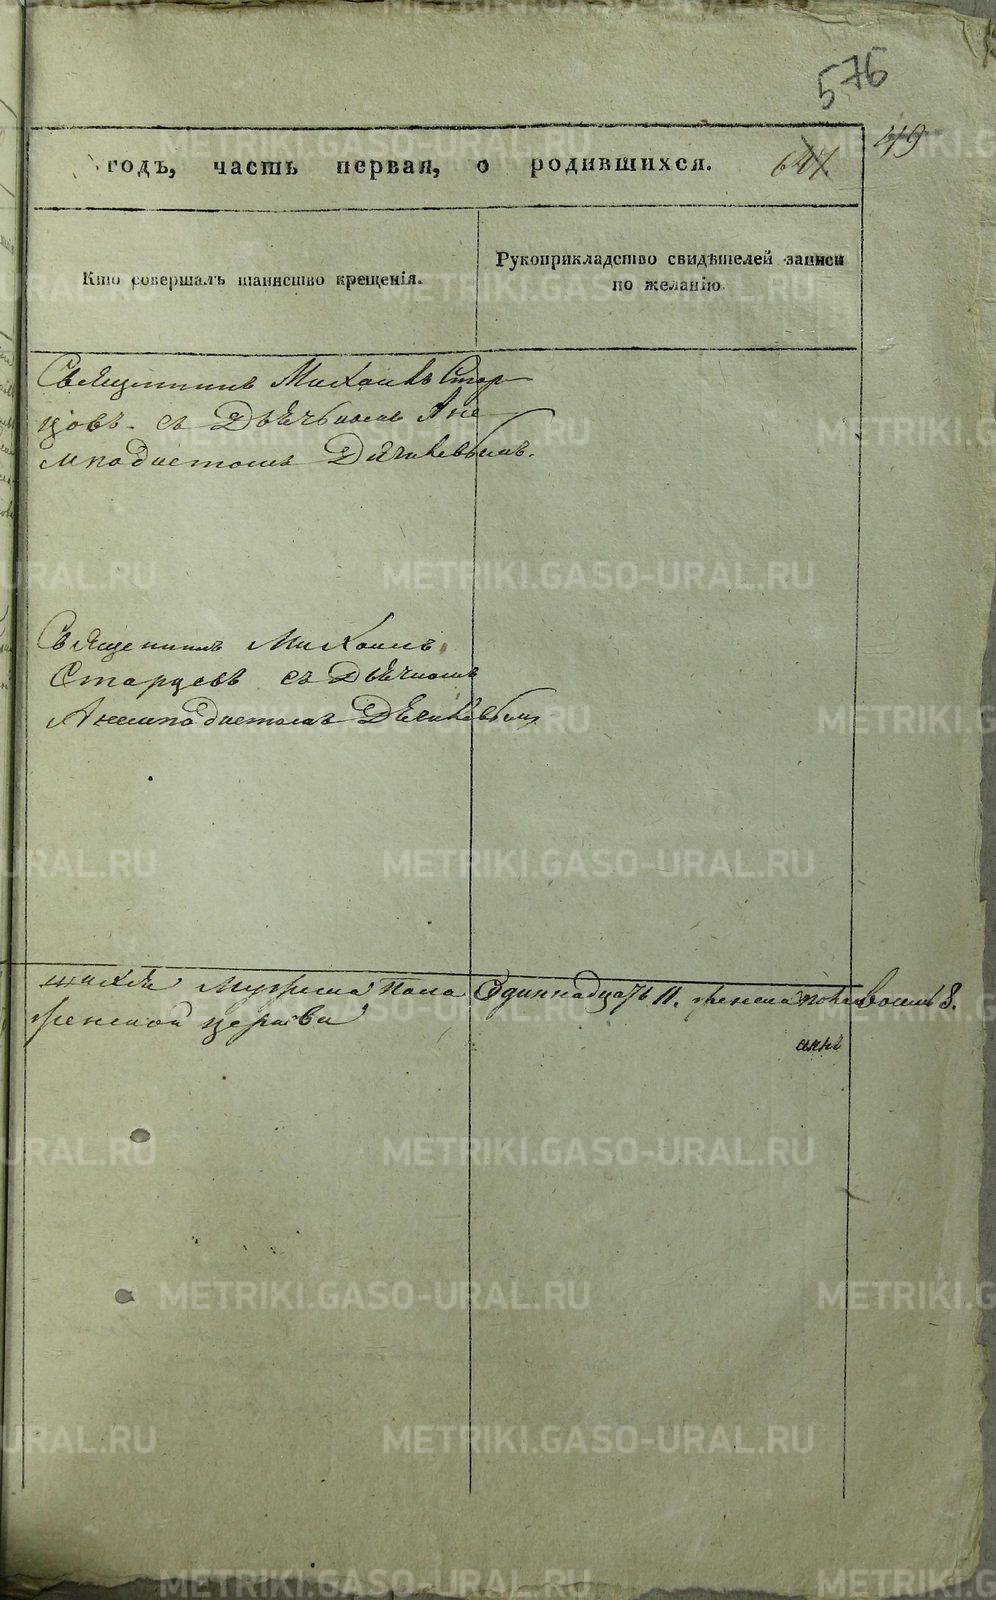 576
49
годъ, часть первая, о родившихся. 647
Кто совершалъ таинство крещенія.
Рукоприкладство свидѣтелей записи
по желанію.
Священникъ Михаилъ Стар-
цовъ съ Дьячкомъ Ане-
мподистомъ Дягилевымъ.
Священникъ Михаилъ
Старцевъ съ Дьячкомъ
Анемподистомъ Дягилевымъ
мужеска пола Одиннадцать 11. женска пола восемь 8.
церкви
METRIKI.GASO-URAL.RU